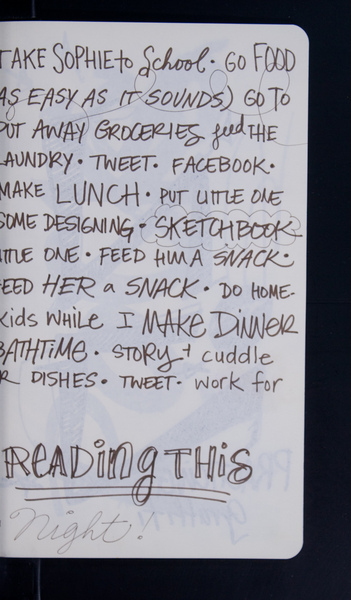 TAKE SOPHIE to School · GO FOOD
AS EASY AS IT SOUNDS) GO TO
PUT AWAY GROCERIES feed THE
LAUNDRY · TWEET · FACEBOOK ·
MAKE LUNCH · PUT LITTLE ONE
SOME DESIGNING · SKETCHBOOK
LITTLE ONE · FEED HIM A SNACK ·
FEED HER a SNACK · DO HOME-
kids While I MAKE DINNER
BATHTIME · STORY + cuddle
DISHES · TWEET · work for
READING THIS
Night!